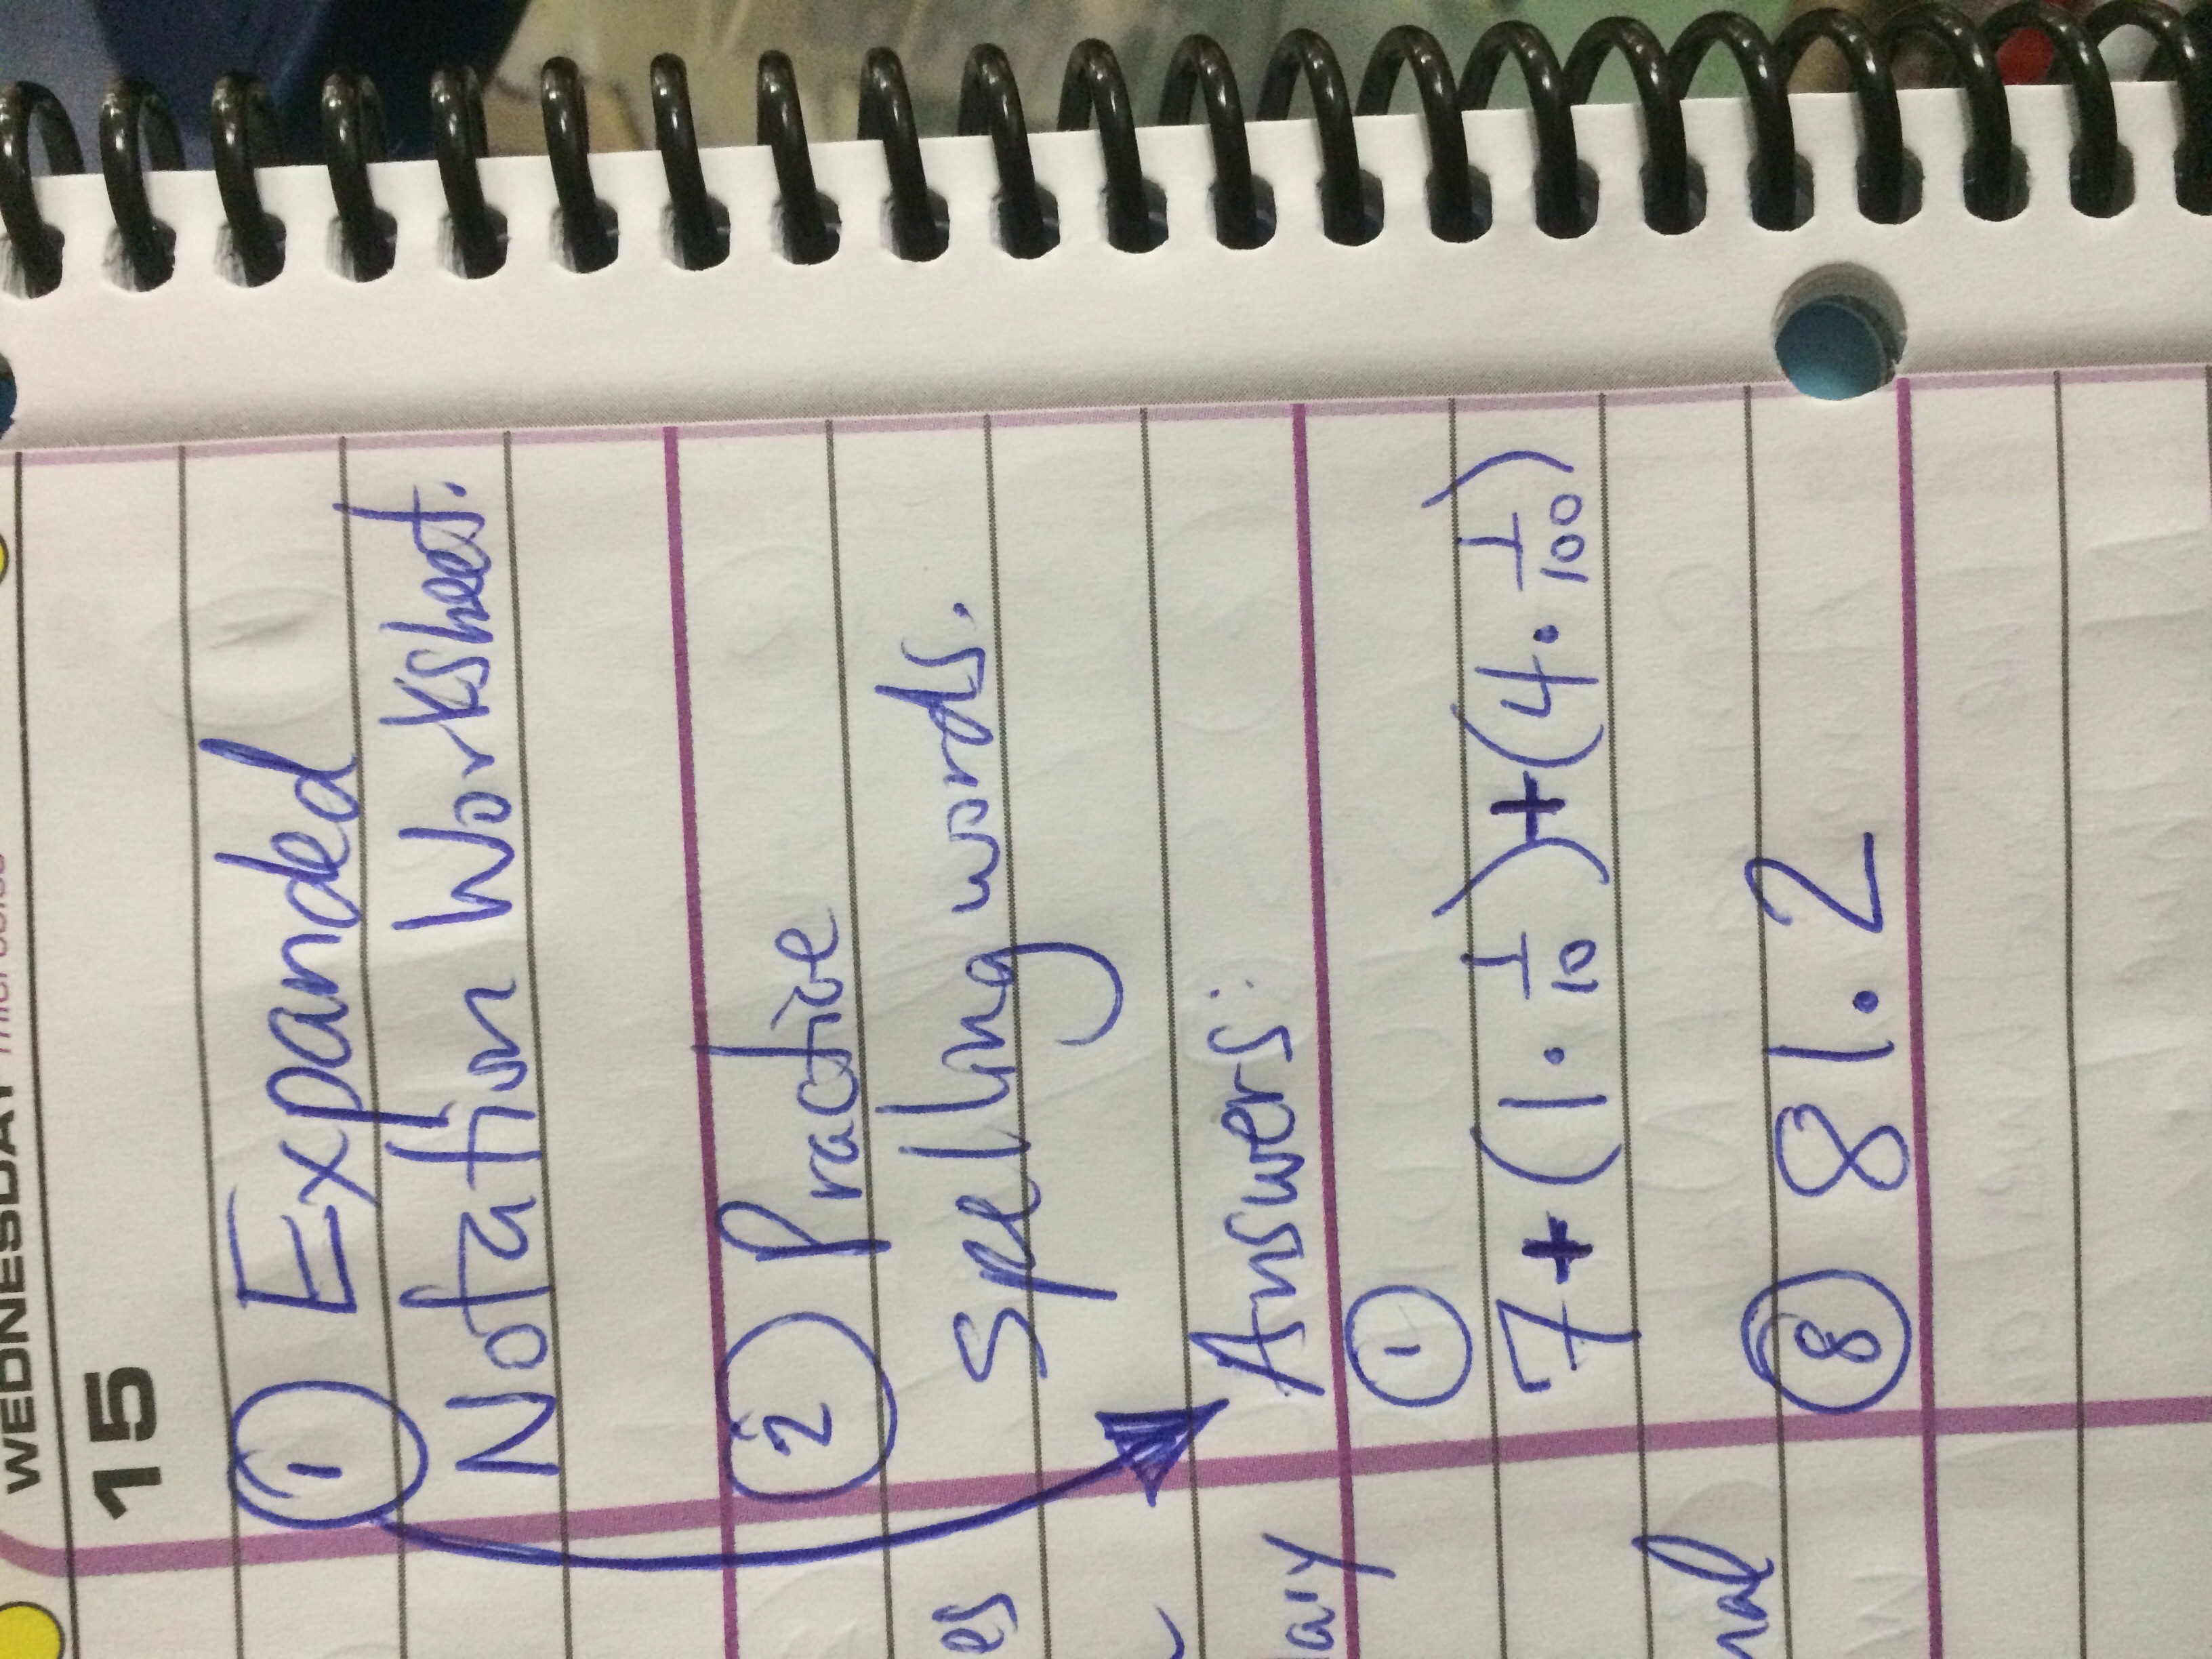 WEDNESDAY
15
① Expanded
Notation Worksheet.
② Practice
Spelling words.
Answers:
①
7+(1·1/10)+(4·1/100)
⑧ 81.2
es